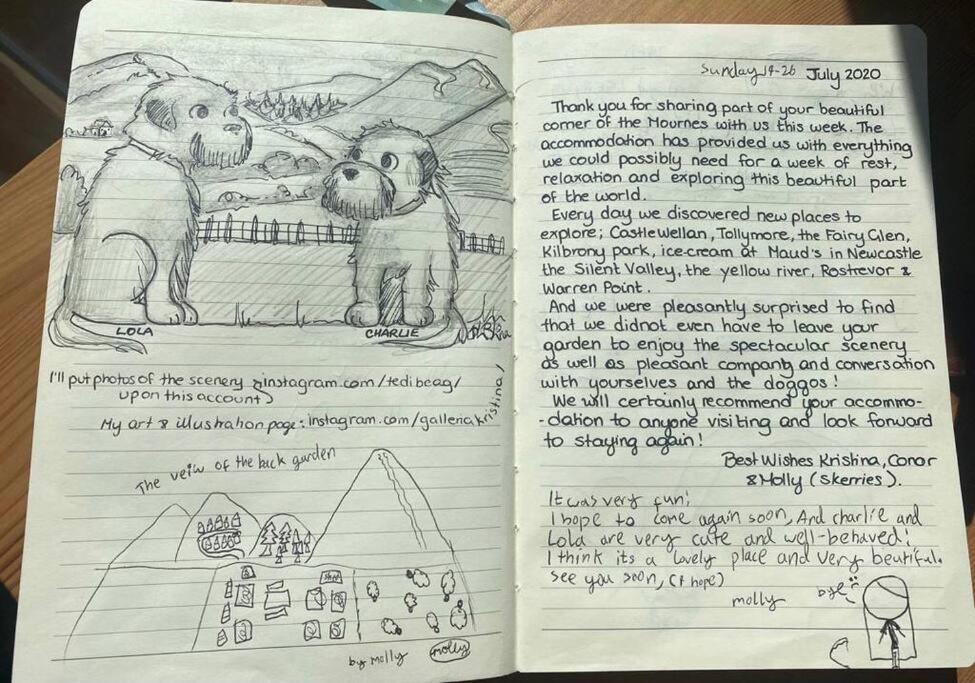 LOLA
CHARLIE
I'll put photos of the scenery instagram.com/tedibeag/
upon this account)
My art & illustration page: instagram.com/galleriakristina/
The veiw of the back garden
by Molly
molly
Sunday 19-26 July 2020
Thank you for sharing part of your beautiful
corner of the Mournes with us this week. The
accommodation has provided us with everything
we could possibly need for a week of rest,
relaxation and exploring this beautiful part
of the world.
Every day we discovered new places to
explore; Castlewellan, Tollymore, the Fairy Glen,
Kilbrony park, ice-cream at Maud's in Newcastle
the Silent Valley, the yellow river, Rostrevor &
Warren Point.
And we were pleasantly surprised to find
that we didnot even have to leave your
garden to enjoy the spectacular scenery
as well as pleasant company and conversation
with yourselves and the doggos!
We will certainly recommend your accommo-
-dation to anyone visiting and look forward
to staying again!
Best Wishes Kristina, Conor
& Molly (Skerries).
It was very fun!
I hope to come again soon, And charlie and
Lola are very cute and well-behaved!
I think its a lovely place and very beutiful.
See you soon, (I hope)
molly
bye